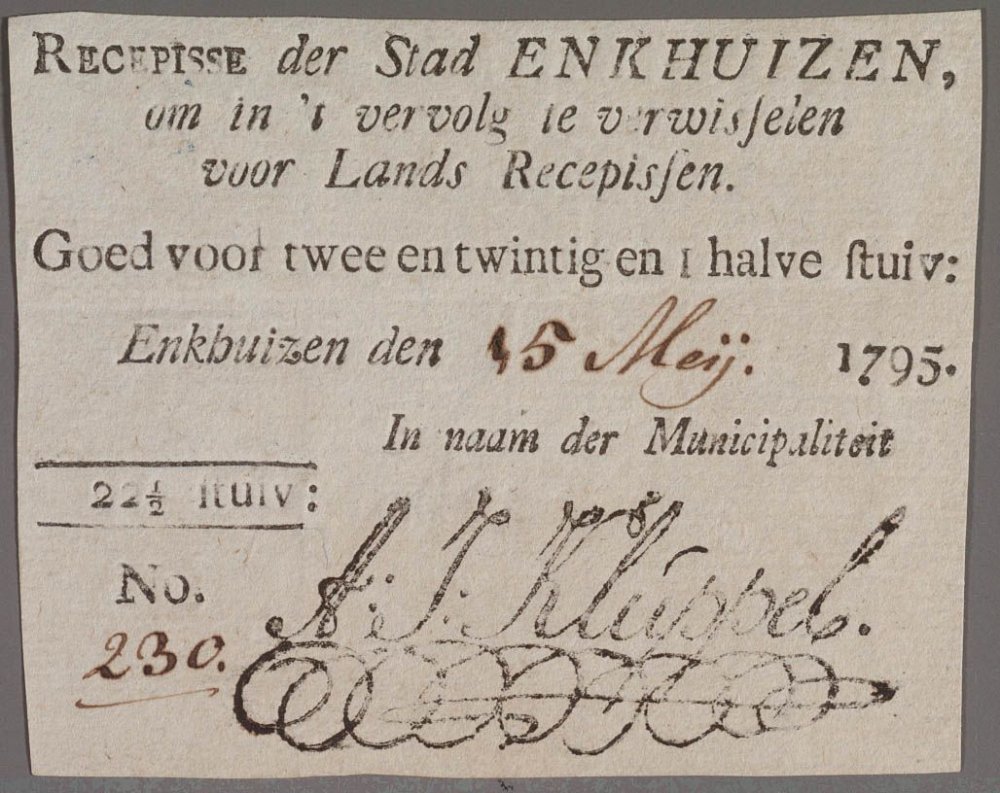 RECEPISSE der Stad ENKHUIZEN,
om in 't vervolg te verwisſelen
voor Lands Recepisſen.
Goed voor twee en twintig en 1 halve ſtuiv:
Enkhuizen den 15 Meij. 1795.
In naam der Municipaliteit
22½ ſtuiv:
A: J: Kluppel.
No.
230.